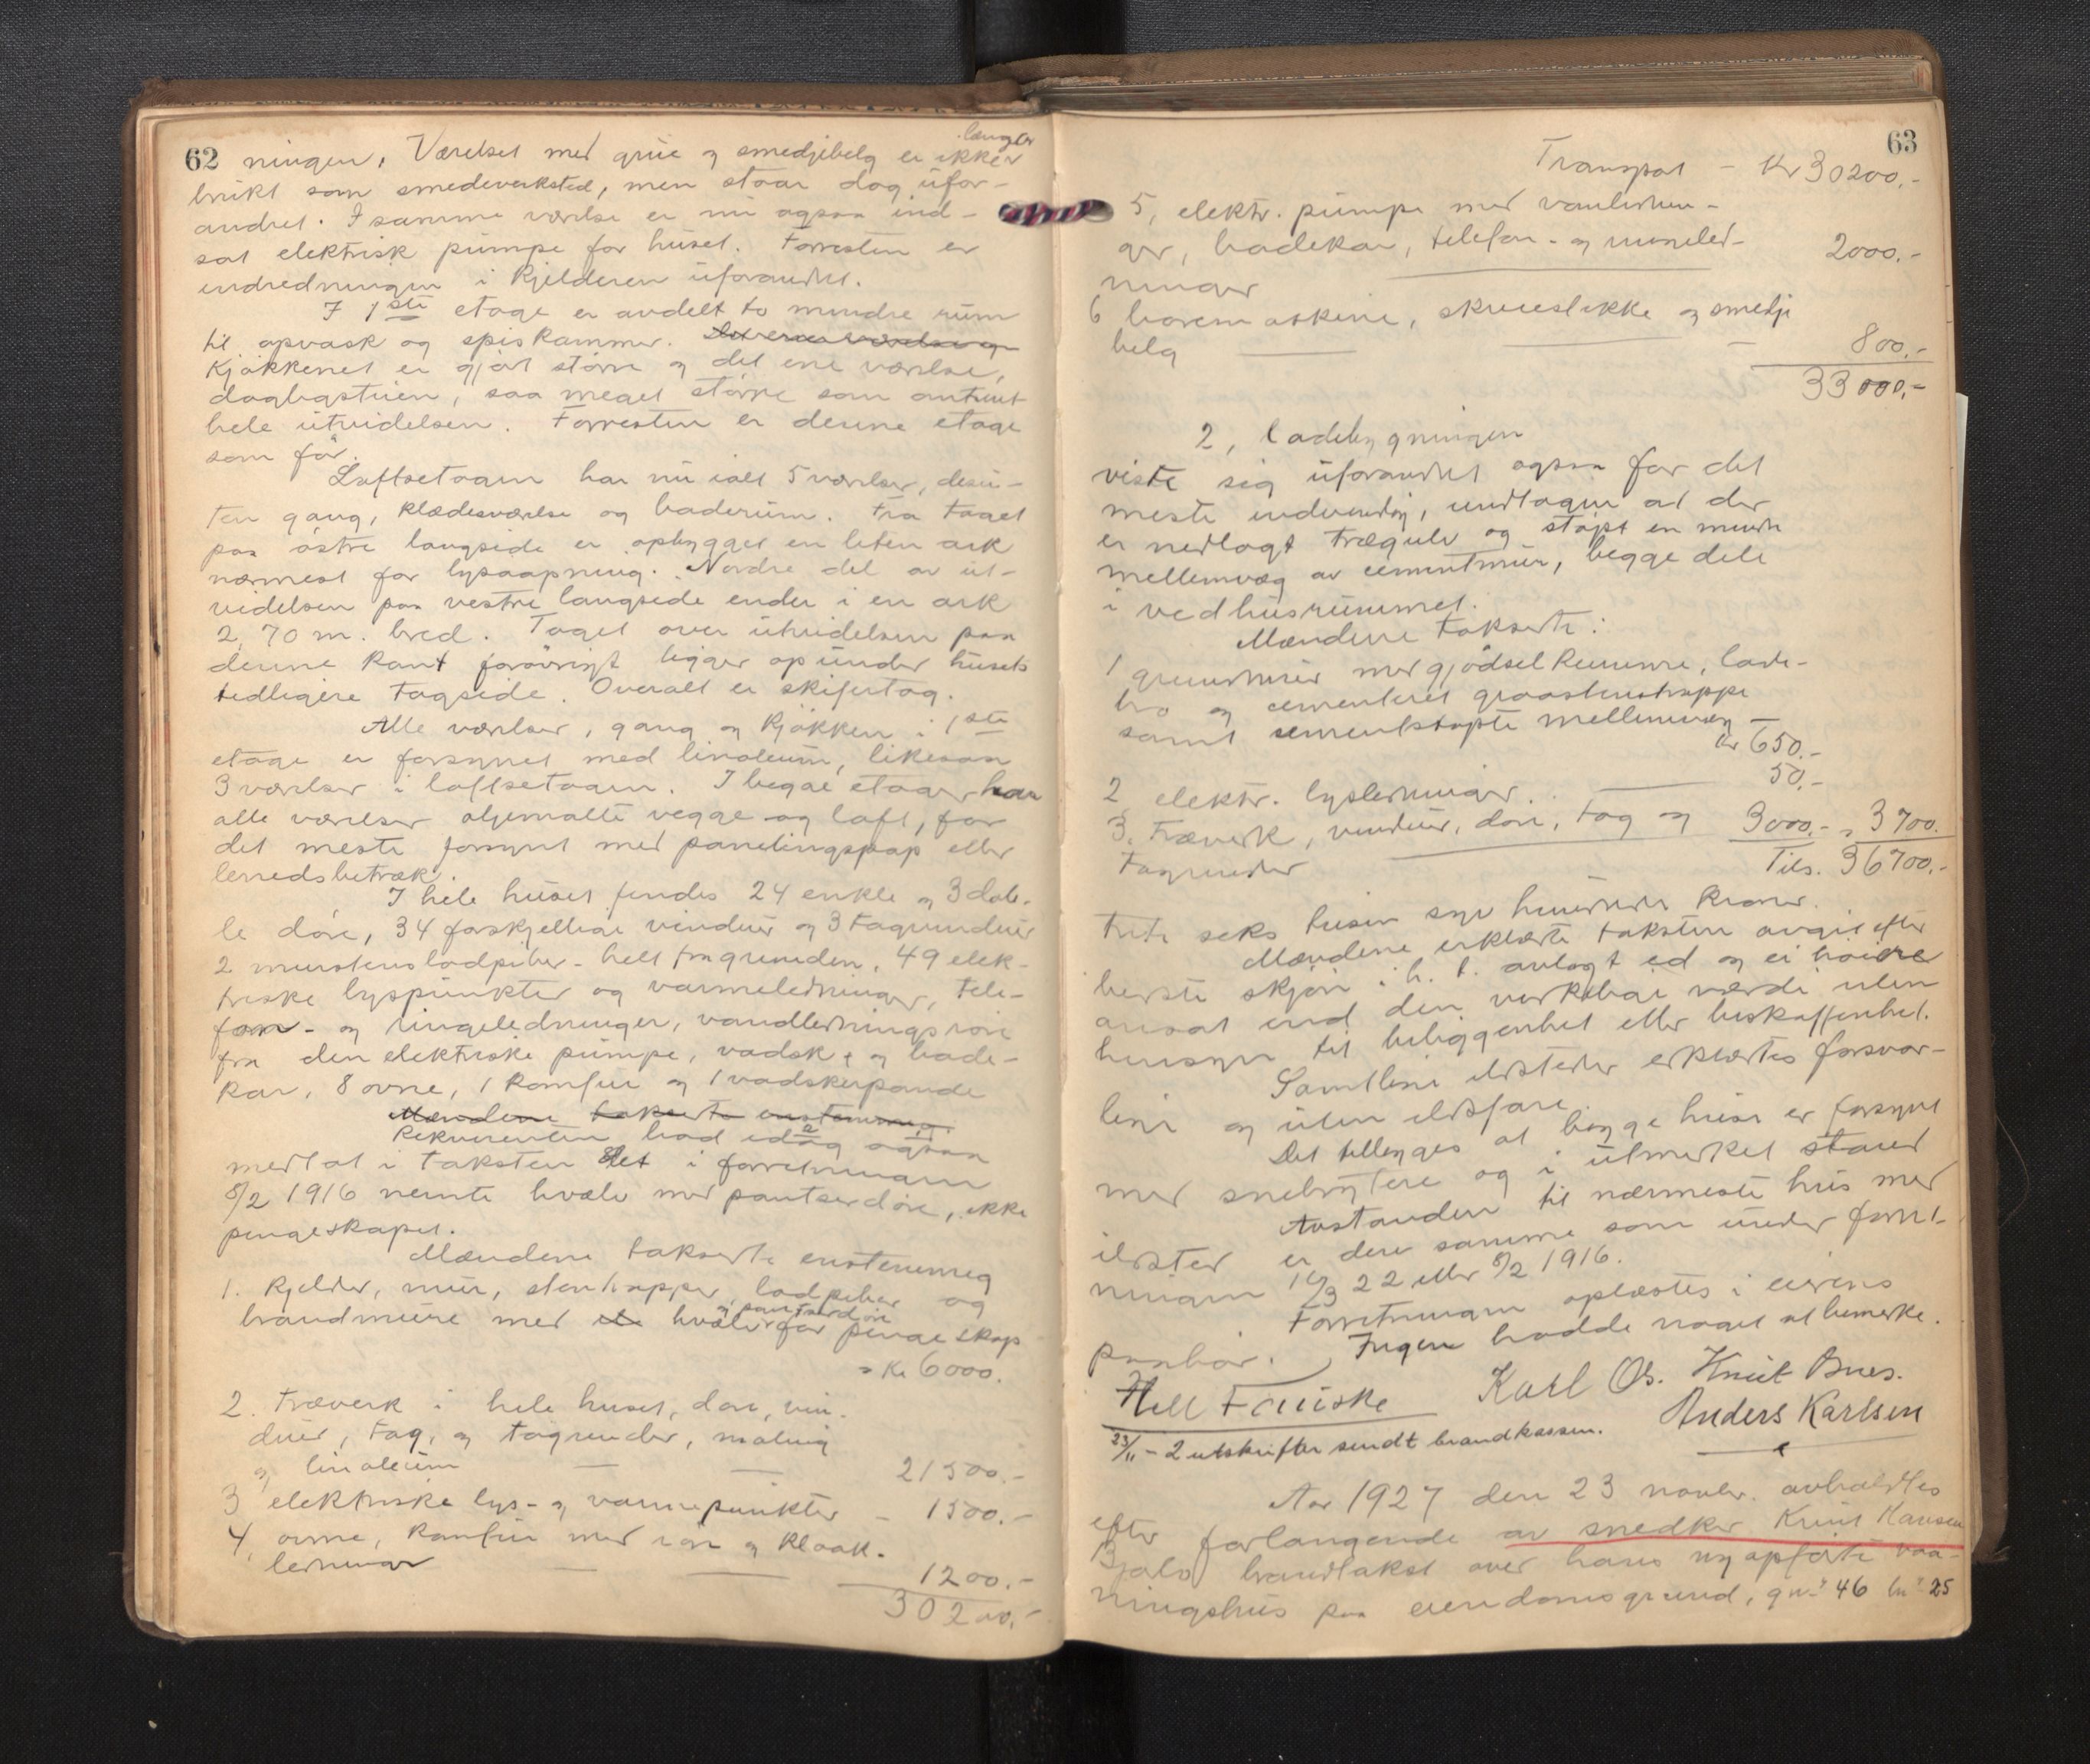 62
ningen. Værelset med grue og smedjebelg er ikke længer
brukt som smedeverksted, men staar dog ufor-
andret. I samme værelse er nu ogsaa ind-
sat elektrisk pumpe for huset. Forresten er
indredningen i kjelderen uforandret.
I 1ste etage er avdelt to mindre rum
til opvask og spiskammer.
Kjøkkenet er gjort større og det ene værelse,
dagligstuen, saa meget større som omtrent
hele utvidelsen. Forresten er denne etage
som før.
Loftsetagen har nu ialt 5 værelser, desu-
ten gang, klædesværelse og baderum. Fra taget
paa østre langside er opbygget en liten ark
nærmest for lysaapning. Nordre del av ut-
videlsen paa vestre langside ender i en ark
2,70 m. bred. Taget over utvidelsen paa
denne kant forøvrigt ligger op under husets
tidligere tagside. Overalt er skifertag.
Alle værelser, gang og kjøkken i 1ste
etage er forsynet med linoleum, likesaa
3 værelser i loftsetagen. I begge etager har
alle værelser oljemalte vegge og loft, for
det meste forsynt med panelingspap eller
lerredsbetræk.
I hele huset findes 24 enkle og 3 dob-
le døre, 34 forskjellige vinduer og 3 tagvinduer
2 murstenslodpiber helt fra grunden, 49 elek-
triske lyspunkter og varmeledninger, tele-
fon- og ringeledninger, vandledningsrør
fra den elektriske pumpe, vadsk og bade-
kar, 8 ovne, 1 komfur og 1 vadskerpande
Mændene takserte enstemmig.
Rekvirenten bad idag ogsaa
medtat i taksten det i forretningen
8/2 1916 nevnte hvælv med pantserdøre, ikke
pengeskapet.
Mændene takserte enstemmig
1. Kjelder, mur, stentrapper, lodpiber og
brandmure med hvælv og pantserdør for pengeskap
= Kr 6000.
2. Træverk i hele huset, døre, vin-
duer, tag, og tagrender, maling
og linoleum — — 21500.-
3 elektriske lys- og varmepunkter - 1500.-
4, ovne, komfur med rør og kloak-
ledninger — — 1200.-
30200.-
63
Transport - Kr 30200.-
5, elektr. pumpe med vandlednin-
ger, badekar, telefon- og ringeled-
ninger — 2000.-
6 boremaskine, skruestikke og smedje
belg — — — 800.-
33000.-
2, Ladebygningen
viste sig uforandret ogsaa for det
meste indvendig, undtagen at der
er nedlagt trægulv og støpt en mindre
mellemvæg av cementmur, begge dele
i vedhusrummet.
Mændene takserte:
1 grundmur med gjødselkummer, lade-
bro og cementeret graastenstrappe
samt cementstøpte mellemvæg —
Kr 650.-
2 elektr. lysledninger. — 50.-
3. Træverk, vinduer, døre, tag og
tagrender — 3000.- = 3700.
Tils. 36700.-
Treti seks tusen syv hundrede kroner.
Mændene erklærte taksten avgit efter
berste skjøn i h. t. avlagt ed og ei høiere
ansat end den virkelige værdi uten
hensyn til beliggenhet eller beskaffenhet.
Samtlige ildsteder erklærtes forsvar-
lige og uten ildsfare.
Det tillegges at begge huse er forsynt
med snebrytere og i utmerket stand
Avstanden til nærmeste hus med
ildsted er den samme som under forret-
ningen 14/3 22 eller 8/2 1916.
Forretningen oplæstes i eierens
paahør. Ingen hadde noget at bemerke.
Hell Fauske Karl Os. Knut Bues.
Anders Karlsen
23/11 - 2 utskrifter sendt brandkassen.
Aar 1927 den 23 novbr. avholdtes
efter forlangende av snedker Knut Hansen
Bjalv brandtakst over hans nyopførte vaa-
ningshus paa eiendomsgrund, gn. 46 bn. 25